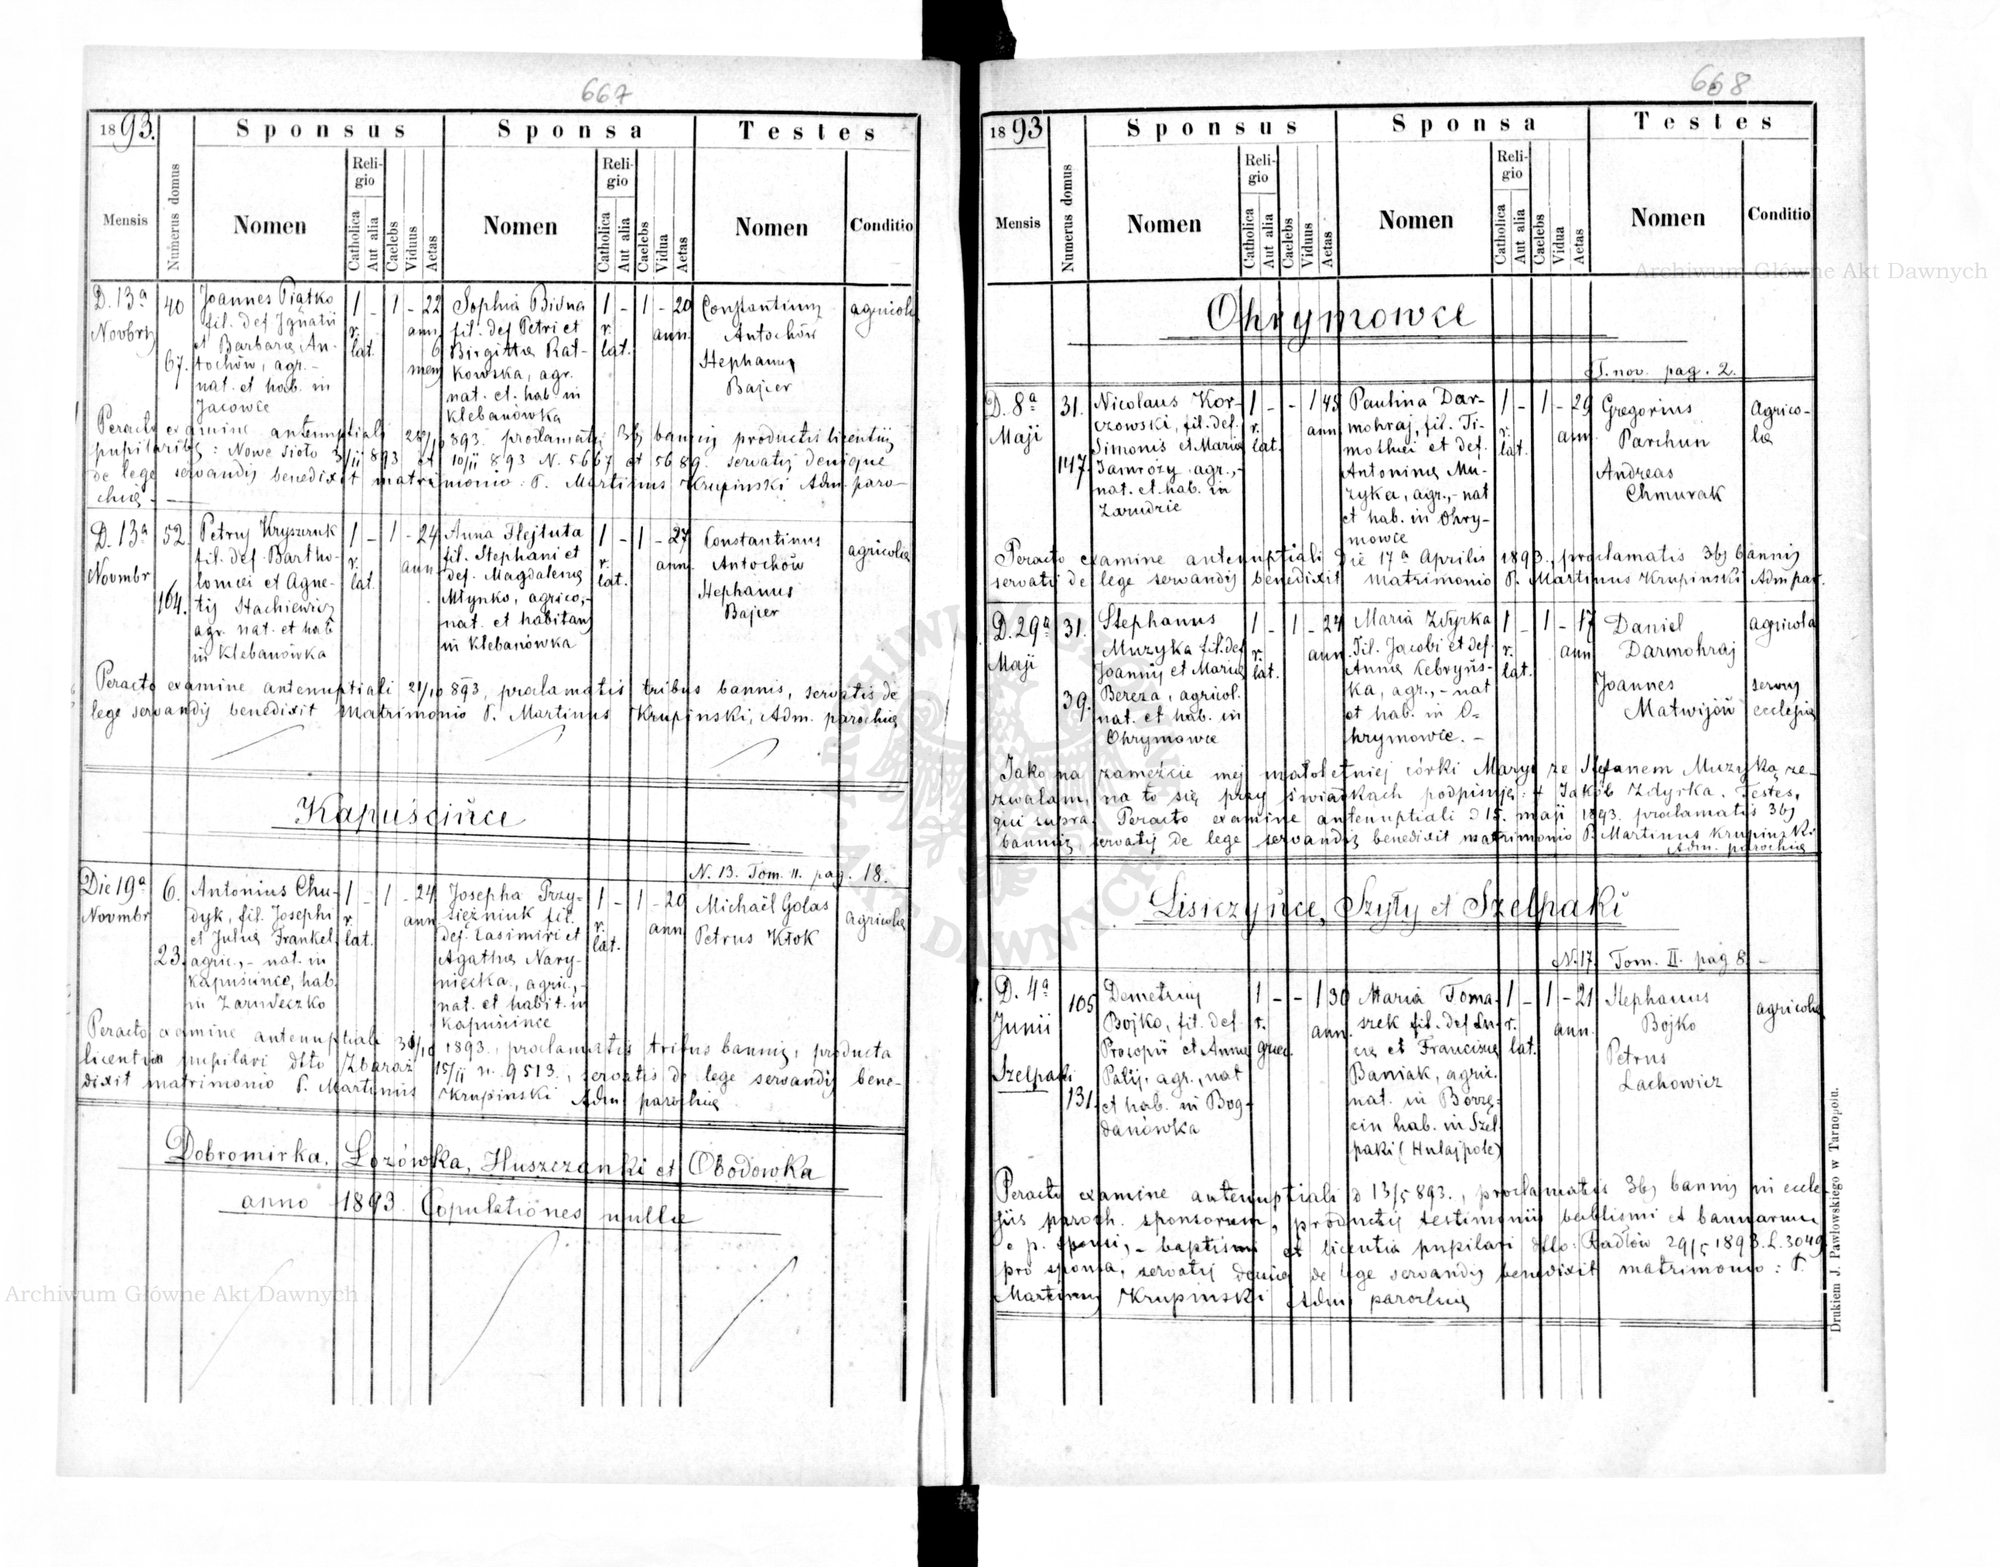 667
1893.
Sponsus
Sponsa
Testes
Mensis
Numerus domus
Nomen
Religio
Catholica
Aut alia
Caelebs
Viduus
Aetas
Nomen
Religio
Catholica
Aut alia
Caelebs
Vidua
Aetas
Nomen
Conditio
D. 13a
Novbris
40
67.
Joannes Piątko
fil. def Ignatii
et Barbarae An-
tochów, agr. -
nat. et hab. in
Jacowce
1
r.
lat.
-
1
-
22
ann
6
mens
Sophia Bidna
fil. def Petri et
Birgittae Rat-
kowska, agr.
nat. et. hab in
Klebanówka
1
r.
lat.
-
1
-
20
ann.
Constantinus
Antochów
Stephanus
Bajcer
agricolae
Peracto examine antenuptiali 893. proclamatis 3bs bannis productis licentiis
pupilaribs: Nowe sioło 893 et 10/11 893 N. 5667 et 5689. servatis denique
de lege servandis benedixit matrimonio: P. Martinus Krupinski Adm. paro-
chiae -
D. 13a
Novmbr
52
164.
Petrus Kryszczuk
fil. def. Bartho-
lomaei et Agne-
tis Stachiewicz
agr. nat. et hab
in Klebanówka
1
r.
lat.
-
1
-
24
ann
Anna Hejtuta
fil. Stephani et
def. Magdalenae
Młynko, agrico,-
nat. et habitans
in Klebanówka
1
r.
lat.
-
1
-
27
ann.
Constantinus
Antochów
Stephanus
Bajcer
agricolae
Peracto examine antenuptiali 21/10 893, proclamatis tribus bannis, servatis de
lege servandis benedixit matrimonio P. Martinus Krupinski, Adm. parochiae
Kapuścińce
N. 13. Tom. II. pag. 18.
Die 19a
Novmbr
6.
23.
Antonius Chu-
dyk, fil. Josephi
et Juliae Frankel
agric.,- nat. in
Kapuśćince, hab.
in Zarudeczko
1
r.
lat.
-
1
-
24
ann
Josepha Przy-
siężniuk fil.
def. Casimiri et
Agathae Nary-
niecka, agric.,-
nat. et habit. in
Kapuśćince
1
r.
lat.
-
1
-
20
ann
Michaël Golas
Petrus Kłok
agricolae
Peracto examine antenuptiali 1893., proclamatis tribus bannis, producta
licentia pupilari dtto Zbaraż 15/11 n. 9513., servatis de lege servandis bene-
dixit matrimonio P. Martinus Krupinski Adm parochiae
Dobromirka, Łozówka, Huszczanki et Obodówka
anno 1893. Copulationes nullae
668
1893
Sponsus
Sponsa
Testes
Mensis
Numerus domus
Nomen
Religio
Catholica
Aut alia
Caelebs
Viduus
Aetas
Nomen
Religio
Catholica
Aut alia
Caelebs
Vidua
Aetas
Nomen
Conditio
Ohrymowce
T. nov. pag. 2.
D. 8a
Maji
31.
147.
Nicolaus Kor-
czowski, fil. def.
Simonis et Mariae
Jamroży, agr.,-
nat. et. hab. in
Zarudzie
1
r.
lat.
-
-
1
45
ann
Paulina Dar-
mohraj, fil. Ti-
mothei et def.
Antoninae Mu-
zyka, agr.,- nat
et hab. in Ohry-
mowce
1
r.
lat.
-
1
-
29
ann
Gregorius
Parchun
Andreas
Chmurak
Agrico-
lae
Peracto examine antenuptiali Die 17a Aprilis 1893., proclamatis 3bs bannis
servatis de lege servandis benedixit matrimonio P. Martinus Krupinski Adm par.
D. 29a
Maji
31.
39.
Stephanus
Muzyka fil. def
Joannis et Mariae
Bereza, agricol.
nat. et hab. in
Ohrymowce
1
r.
lat.
-
1
-
24
ann
Maria Zdyrka
Fil. Jacobi et def.
Annae Kebryńs-
ka, agr.,- nat
et hab. in O-
hrymowce. -
1
r.
lat.
-
1
-
17
ann
Daniel
Darmohraj
Joannes
Matwijów
agricola
servus
ecclesiae
Jako na zamęźcie mej małoletniej córki Maryi ze Stefanem Muzyką ze-
zwalam, na to się przy świadkach podpisuję: + Jakób Zdyrka. Testes,
qui supra. Peracto examine antenuptiali d 15. maji 1893. proclamatis 3bs
bannis, servatis de lege servandis benedixit matrimonio P. Martinus Krupinski
Adm. parochiae
Lisiczyńce, Szyły et Szelpaki
N. 17. Tom. II. pag 8. -
D. 4a
Junii
Szelpaki
105
131.
Demetrius
Bojko, fil. def.
Procopii et Annae
Palij, agr., nat
et hab. in Bog-
danówka
1
r.
graec.
-
-
1
30
ann.
Maria Toma-
szek fil. def Lu-
cae et Franciscae
Baniak, agric.
nat. in Borzę-
cin hab. in Szel-
paki (Hulajpole)
1
r.
lat.
-
1
-
21
ann.
Stephanus
Bojko
Petrus
Lachowicz
agricolae
Peracto examine antenuptiali d 13/5 893., proclamatis 3bs bannis in eccle-
siis paroch. sponsorum, productis testimoniis babtismi et bannorum
p. sponsi,- baptismi et licentia pupilari dtto: Radłów 29/5 1893. L. 3049.
pro sponsa, servatis denique de lege servandis benedixit matrimonio: P.
Martinus Krupinski Adm parochiae
Drukiem J. Pawłowskiego w Tarnopolu.
Archiwum Główne Akt Dawnych
Archiwum Główne Akt Dawnych
ARCHIWUM GŁÓWNE AKT DAWNYCH